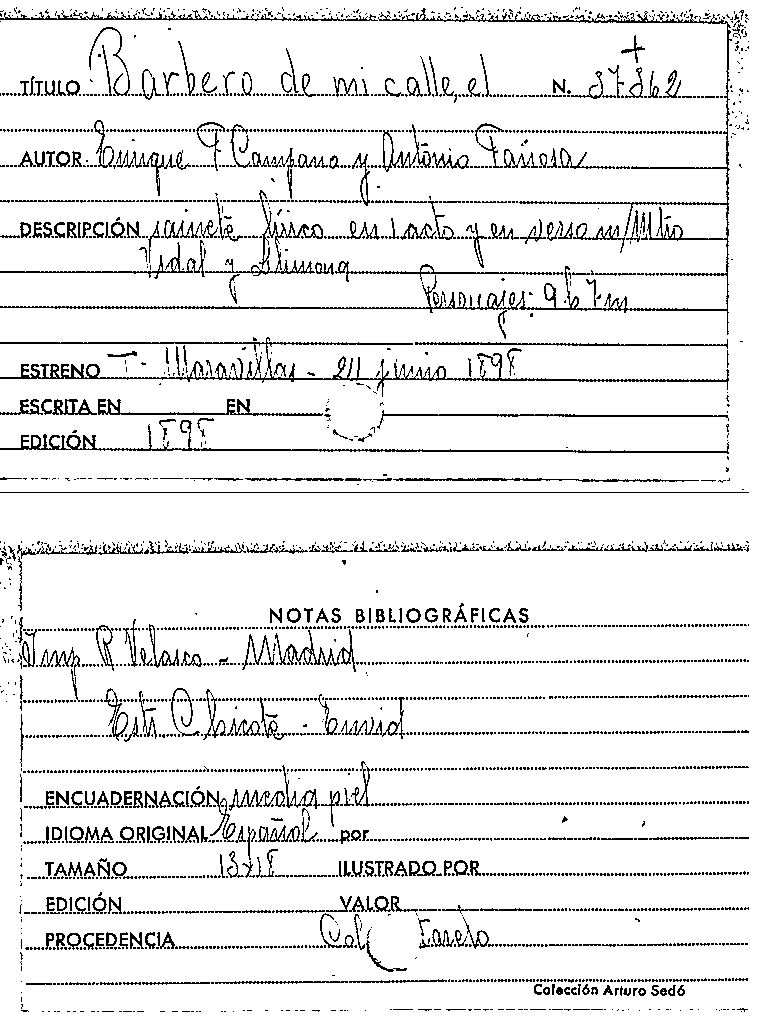 TÍTULO Barbero de mi calle, el N. 37362
AUTOR Enrique F Campano y Antonio Fanosa
DESCRIPCIÓN sainete lírico en 1 acto y en verso m/Mtro
Vidal y Llimona
Personajes: 9 h 7 m
ESTRENO T. Maravillas - 24 junio 1898
ESCRITA EN EN
EDICIÓN 1898
NOTAS BIBLIOGRÁFICAS
Imp R Velasco - Madrid
Chicote -
ENCUADERNACIÓN media piel
IDIOMA ORIGINAL Español por
TAMAÑO 13x18 ILUSTRADO POR
EDICIÓN VALOR
PROCEDENCIA Col
Colección Arturo Sedó